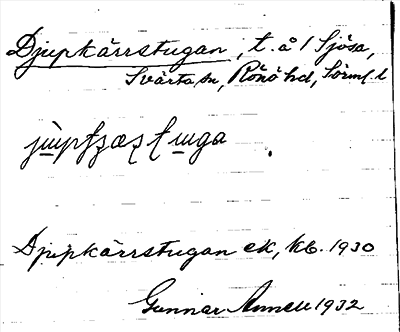 Djupkärrstugan, t. å 1 Sjösa,
Svärta sn, Rönö hd, Sörml. l
Djupkärrstugan ek, kb. 1930
Gunnar Annell 1932